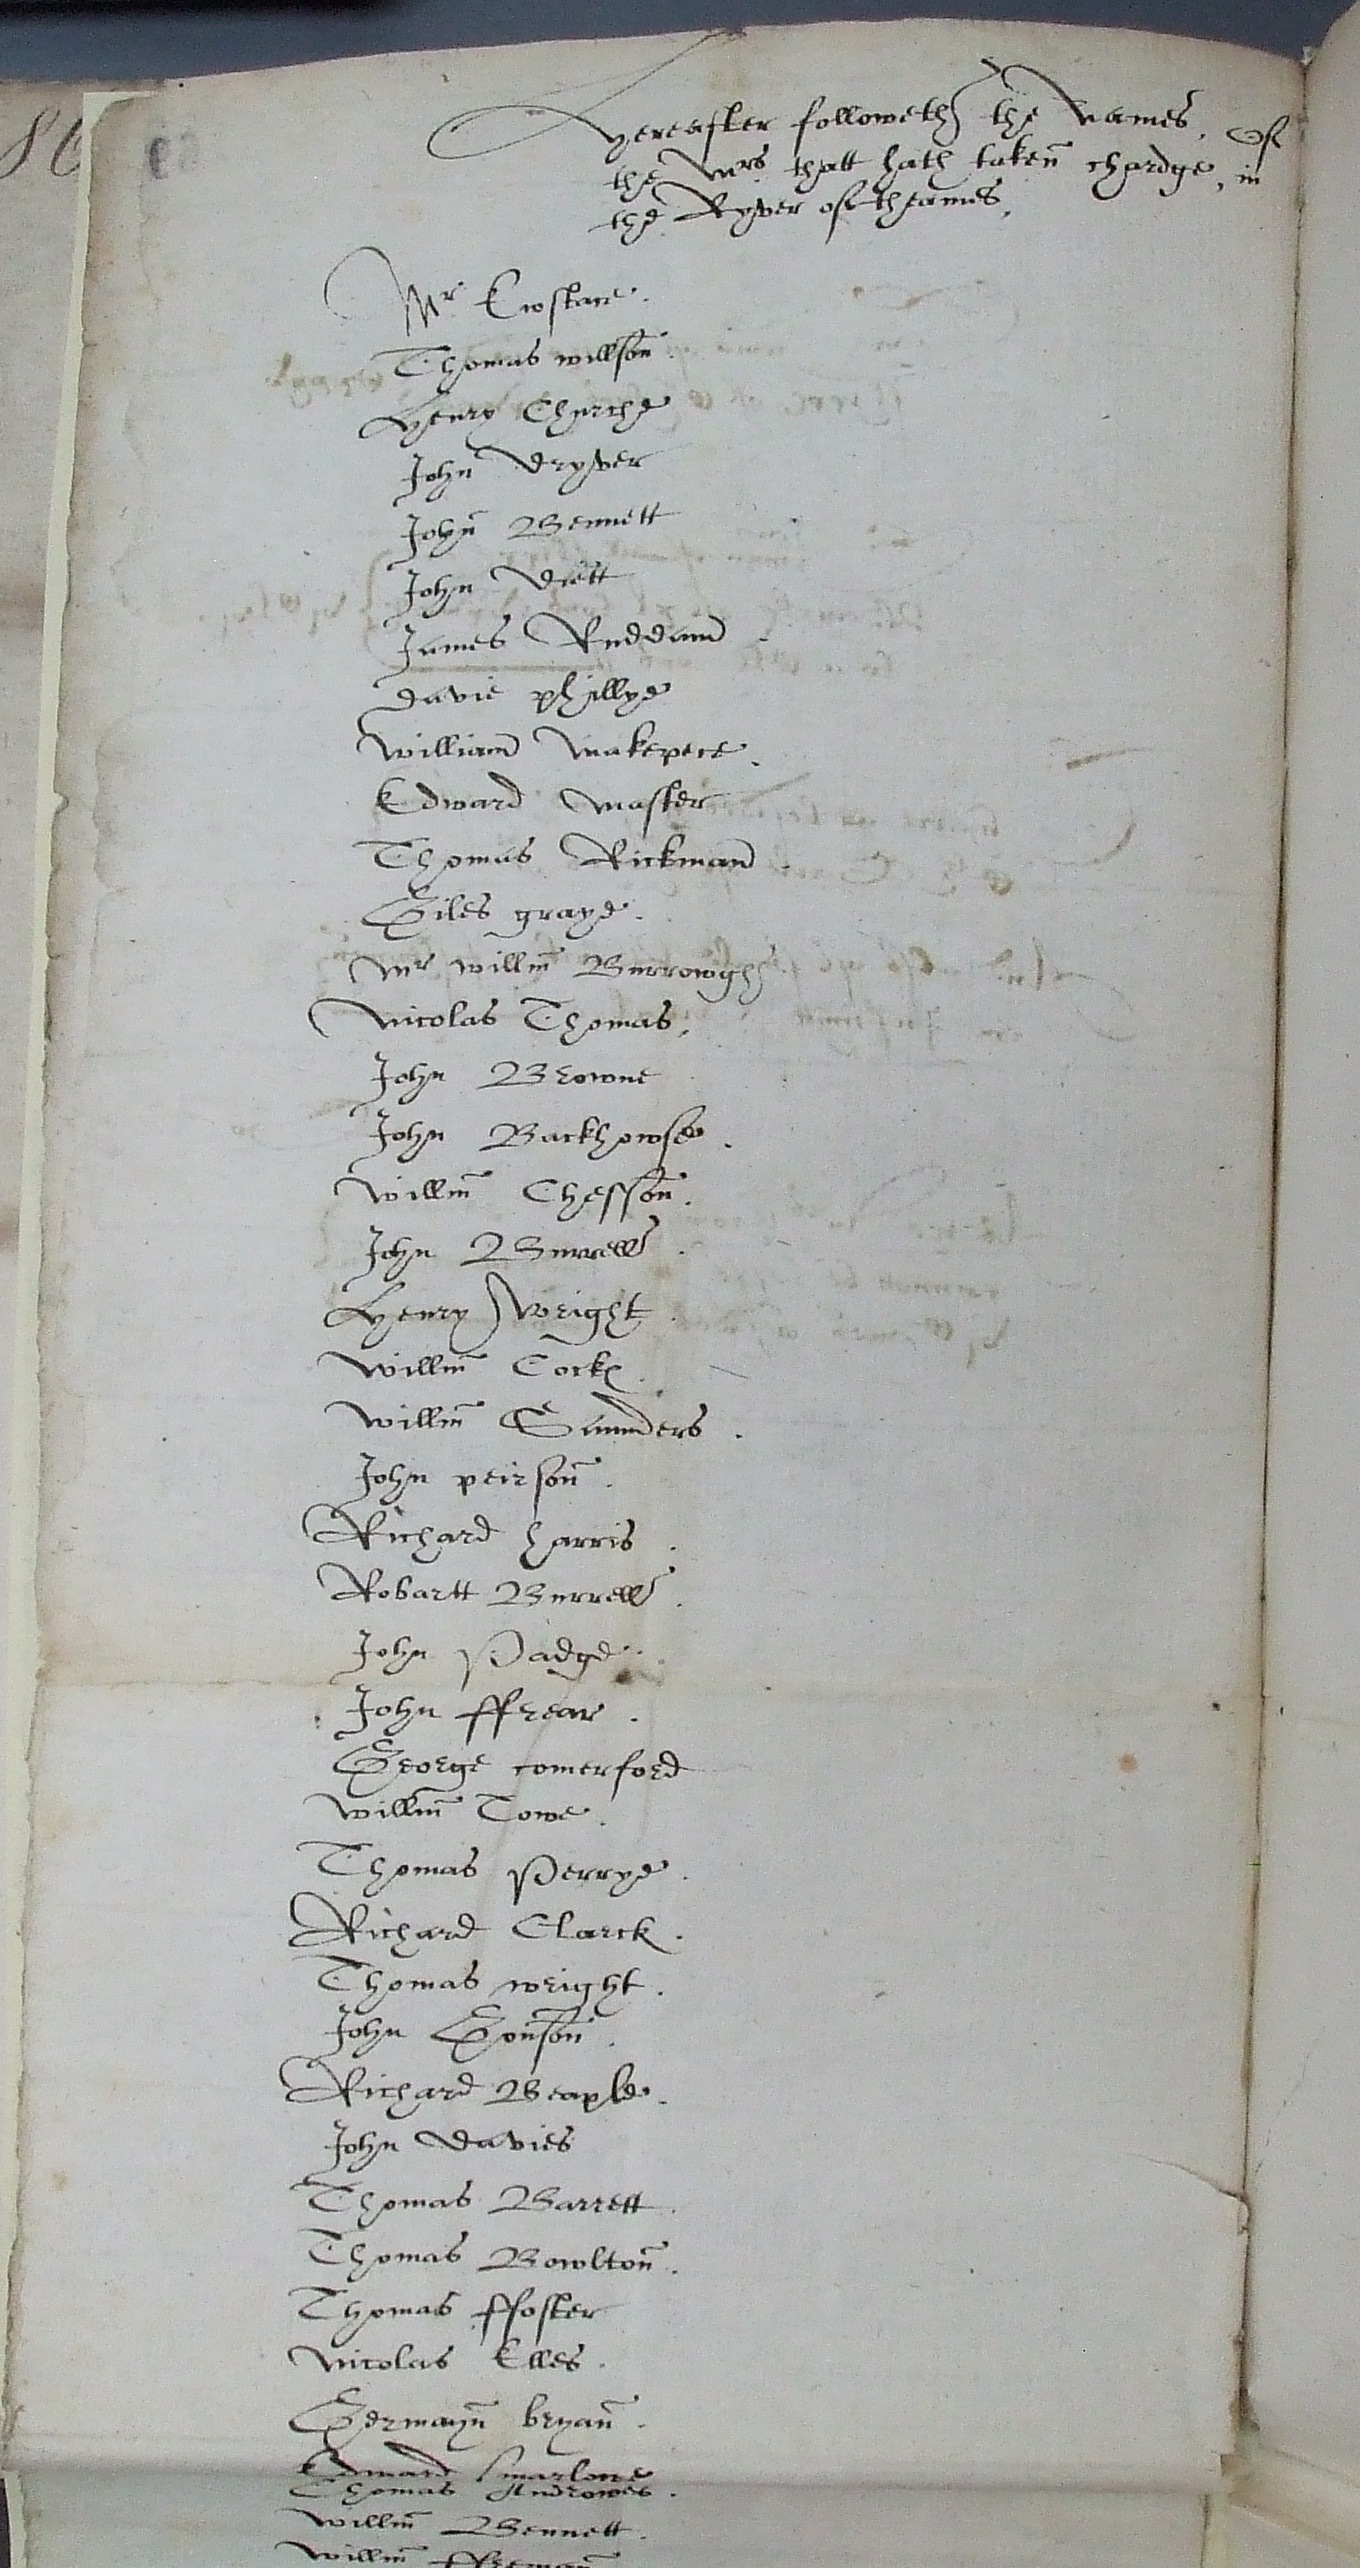 86
Hereafter followeth the names, of
the Mrs thatt hath taken chardge, in
the Ryver of theames,
Mr Ewstace.
Thomas willson.
Henry Churche
John Dryver
John Bennett
John Viett
James Ruddam
Davie phillye
William Makepece.
Edward Master
Thomas Rickman
Giles graye.
Mr willm Burrowgh
Nicolas Thomas,
John Browne
John Backhowse.
Willm Chesson.
John Burrell.
Henry Wright.
Willm Cock.
Willm Saunders.
John peirson.
Richard harris.
Robartt Burrell.
John Padge.
John ffrear.
George comerford
Willm Towe.
Thomas Perrye.
Richard Clarck.
Thomas wright.
John Gonson.
Richard Beaple.
John Davies
Thomas Barrett.
Thomas Bowlton.
Thomas ffoster
Nicolas Elles.
Germayn bryan.
Edward
Thomas Androwes.
Willm Bennett.
Willm ffreman